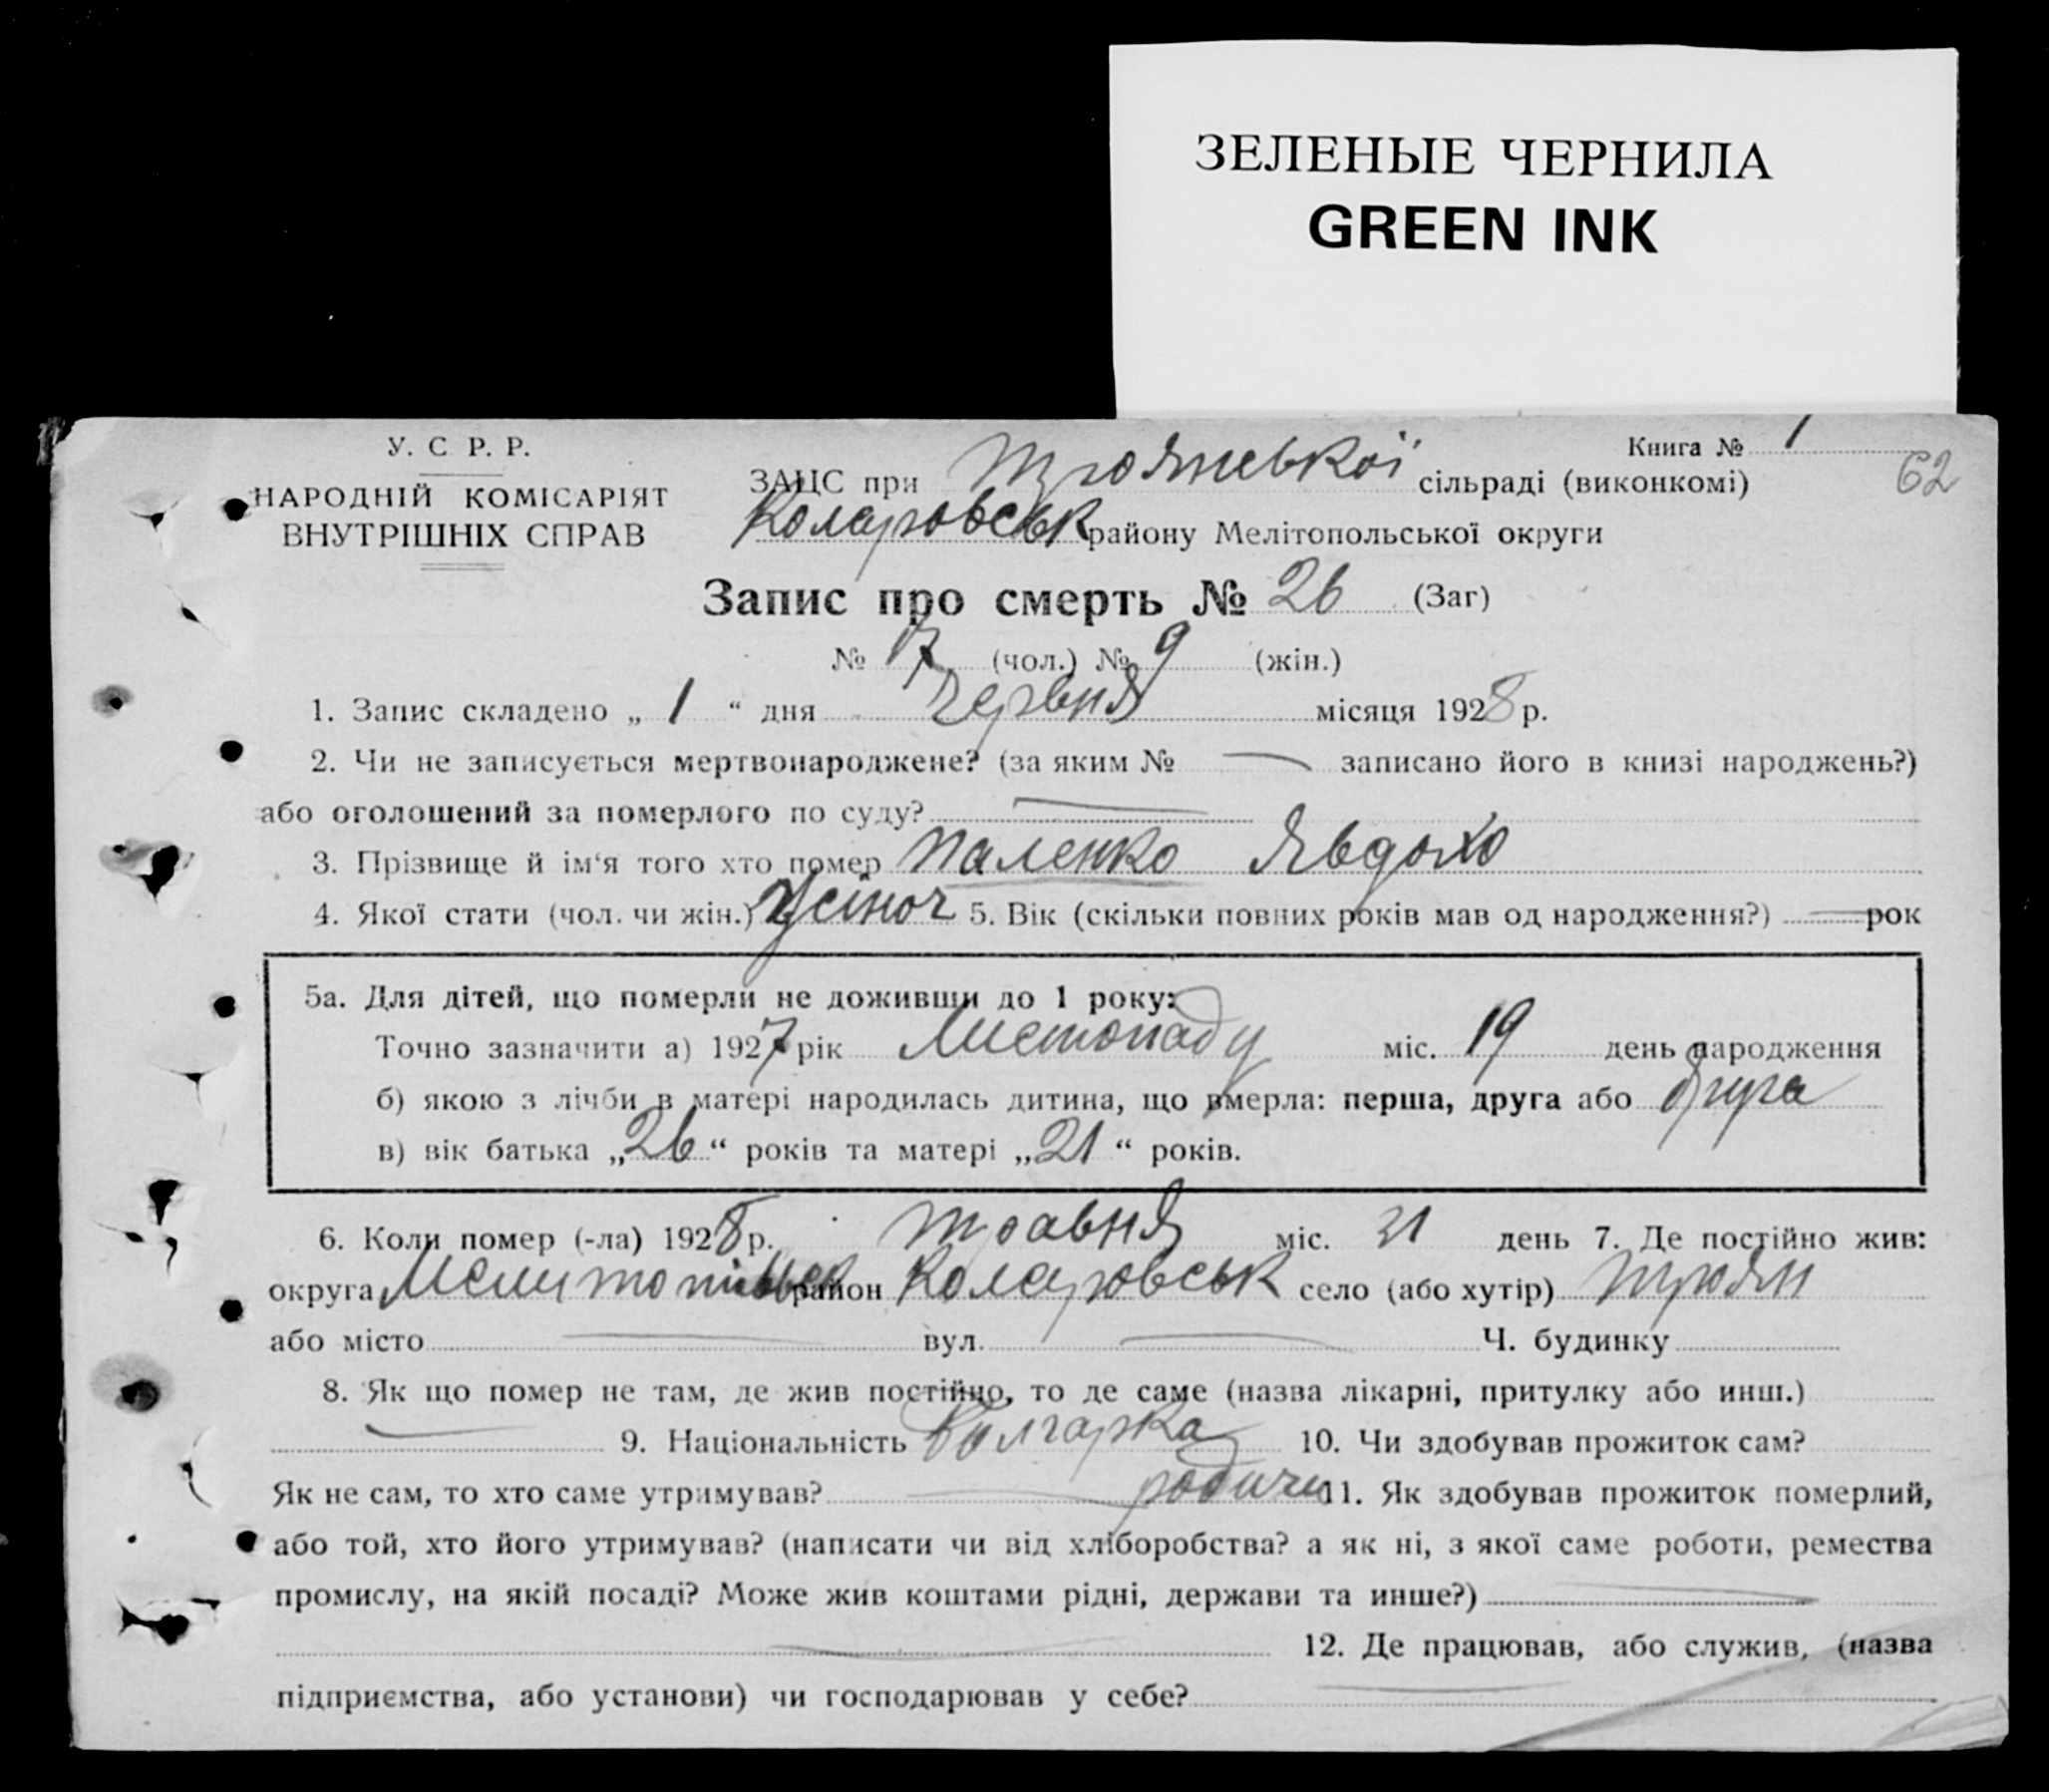 ЗЕЛЕНЫЕ ЧЕРНИЛА
GREEN INK
У. С. Р. Р.
НАРОДНІЙ КОМІСАРІЯТ
ВНУТРІШНІХ СПРАВ
Книга № 1
62
ЗАЦС при Троянської сільраді (виконкомі)
Коларовськ району Мелітопольської округи
Запис про смерть № 26 (Заг)
№ 17 (чол.) № 9 (жін.)
1. Запис складено „ 1 “ дня Червня місяця 1928 р.
2. Чи не записується мертвонароджене? (за яким № — записано його в книзі народжень?)
або оголошений за померлого по суду? —
3. Прізвище й ім‘я того хто помер Паленко Явдохо
4. Якої стати (чол. чи жін.) Жіноч 5. Вік (скільки повних років мав од народження?) — рок
5а. Для дітей, що померли не доживши до 1 року:
Точно зазначити а) 1927 рік Листопаду міс. 19 день народження
б) якою з лічби в матері народилась дитина, що вмерла: перша, друга або друга
в) вік батька „26“ років та матері „21“ років.
6. Коли помер (-ла) 1928 р. травня міс. 31 день 7. Де постійно жив:
округа район Коларовськ село (або хутір) Троян
або місто — вул. — Ч. будинку
8. Як що помер не там, де жив постійно, то де саме (назва лікарні, притулку або инш.)
— 9. Національність Болгарка 10. Чи здобував прожиток сам?
Як не сам, то хто саме утримував? — родичи 11. Як здобував прожиток померлий,
або той, хто його утримував? (написати чи від хліборобства? а як ні, з якої саме роботи, ремества
промислу, на якій посаді? Може жив коштами рідні, держави та инше?) —
— 12. Де працював, або служив, (назва
підприємства, або установи) чи господарював у себе? —